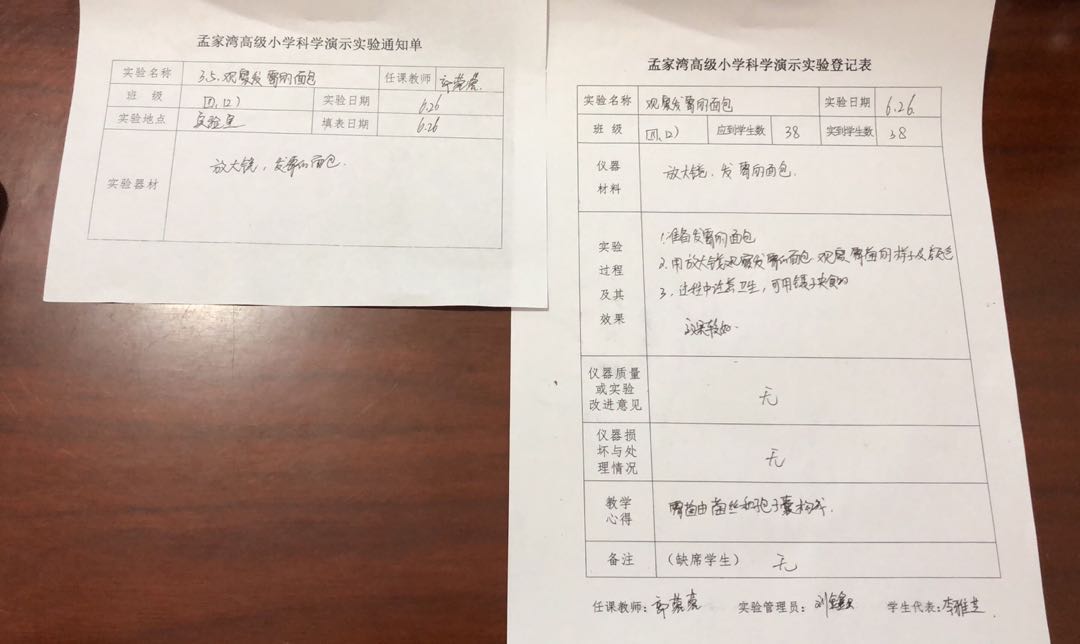 孟家湾高级小学科学演示实验通知单
实验名称 3.5.观察发霉的面包 任课教师
班 级 四、(2) 实验日期 6.26
实验地点 实验室 填表日期 6.26
实验器材 放大镜,发霉的面包.
孟家湾高级小学科学演示实验登记表
实验名称 观察发霉的面包 实验日期 6.26.
班 级 四、(2) 应到学生数 38 实到学生数 38
仪器材料 放大镜,发霉的面包.
实验过程及其效果
1.准备发霉的面包
2.用放大镜观察发霉的面包.观察霉菌的样子及颜色
3.过程中注意卫生,可用镊子夹
效果较好.
仪器质量或实验改进意见 无
仪器损坏与处理情况 无
教学心得 霉菌由菌丝和孢子囊构成.
备注 (缺席学生) 无
任课教师: 实验管理员: 学生代表:李雅芝